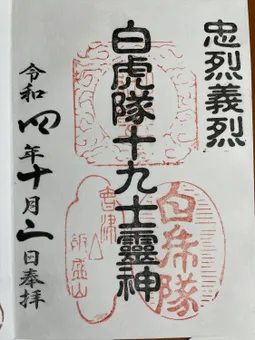 忠烈義烈
白虎隊十九士靈神
令和四年十月二日奉拝
白虎隊
會津
飯盛山